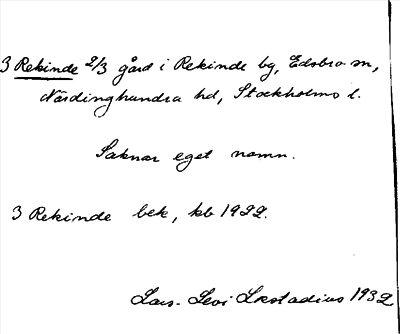 3 Rekinde 2/3 gård i Rekinde by, Edsbro sn,
Närdinghundra hd, Stockholms l.
Saknar eget namn.
3 Rekinde bek, kb 1922.
Lars-Levi Læstadius 1932